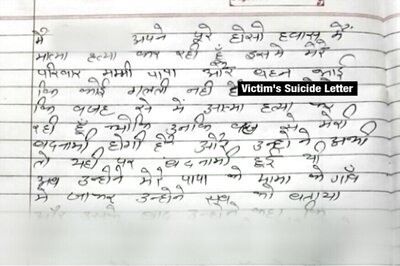 मैं अपने पूरे होसो हवास में
आत्मा हत्या कर रही हूँ इसमे मेरे
परिवार मम्मी पापा और बहन भाई
कि कोई गलती नहीं है
Victim's Suicide Letter
कि वजह से में आत्मा हत्या कर
रही हूँ क्योकि उनकि वजह से मेरी
बदनामी होगी है और उन्होने
तो यही पर बदनामी हुई थी
अब उन्होने मेरे पापा के मामा के गाँव
मे जाकर उन्होने सब को बताया